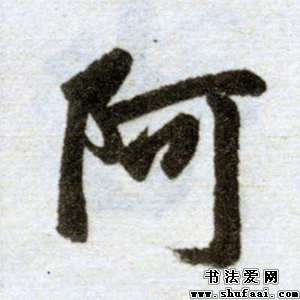 阿
书法爱网
www.shufaai.com